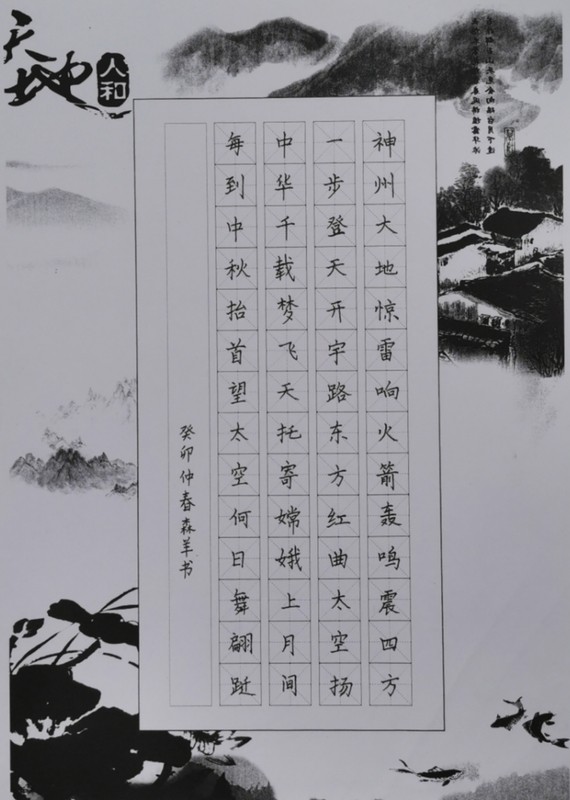 天地
人和
神州大地惊雷响火箭轰鸣震四方
一步登天开宇路东方红曲太空扬
中华千载梦飞天托寄嫦娥上月间
每到中秋抬首望太空何日舞翩跹
癸卯仲春森羊书